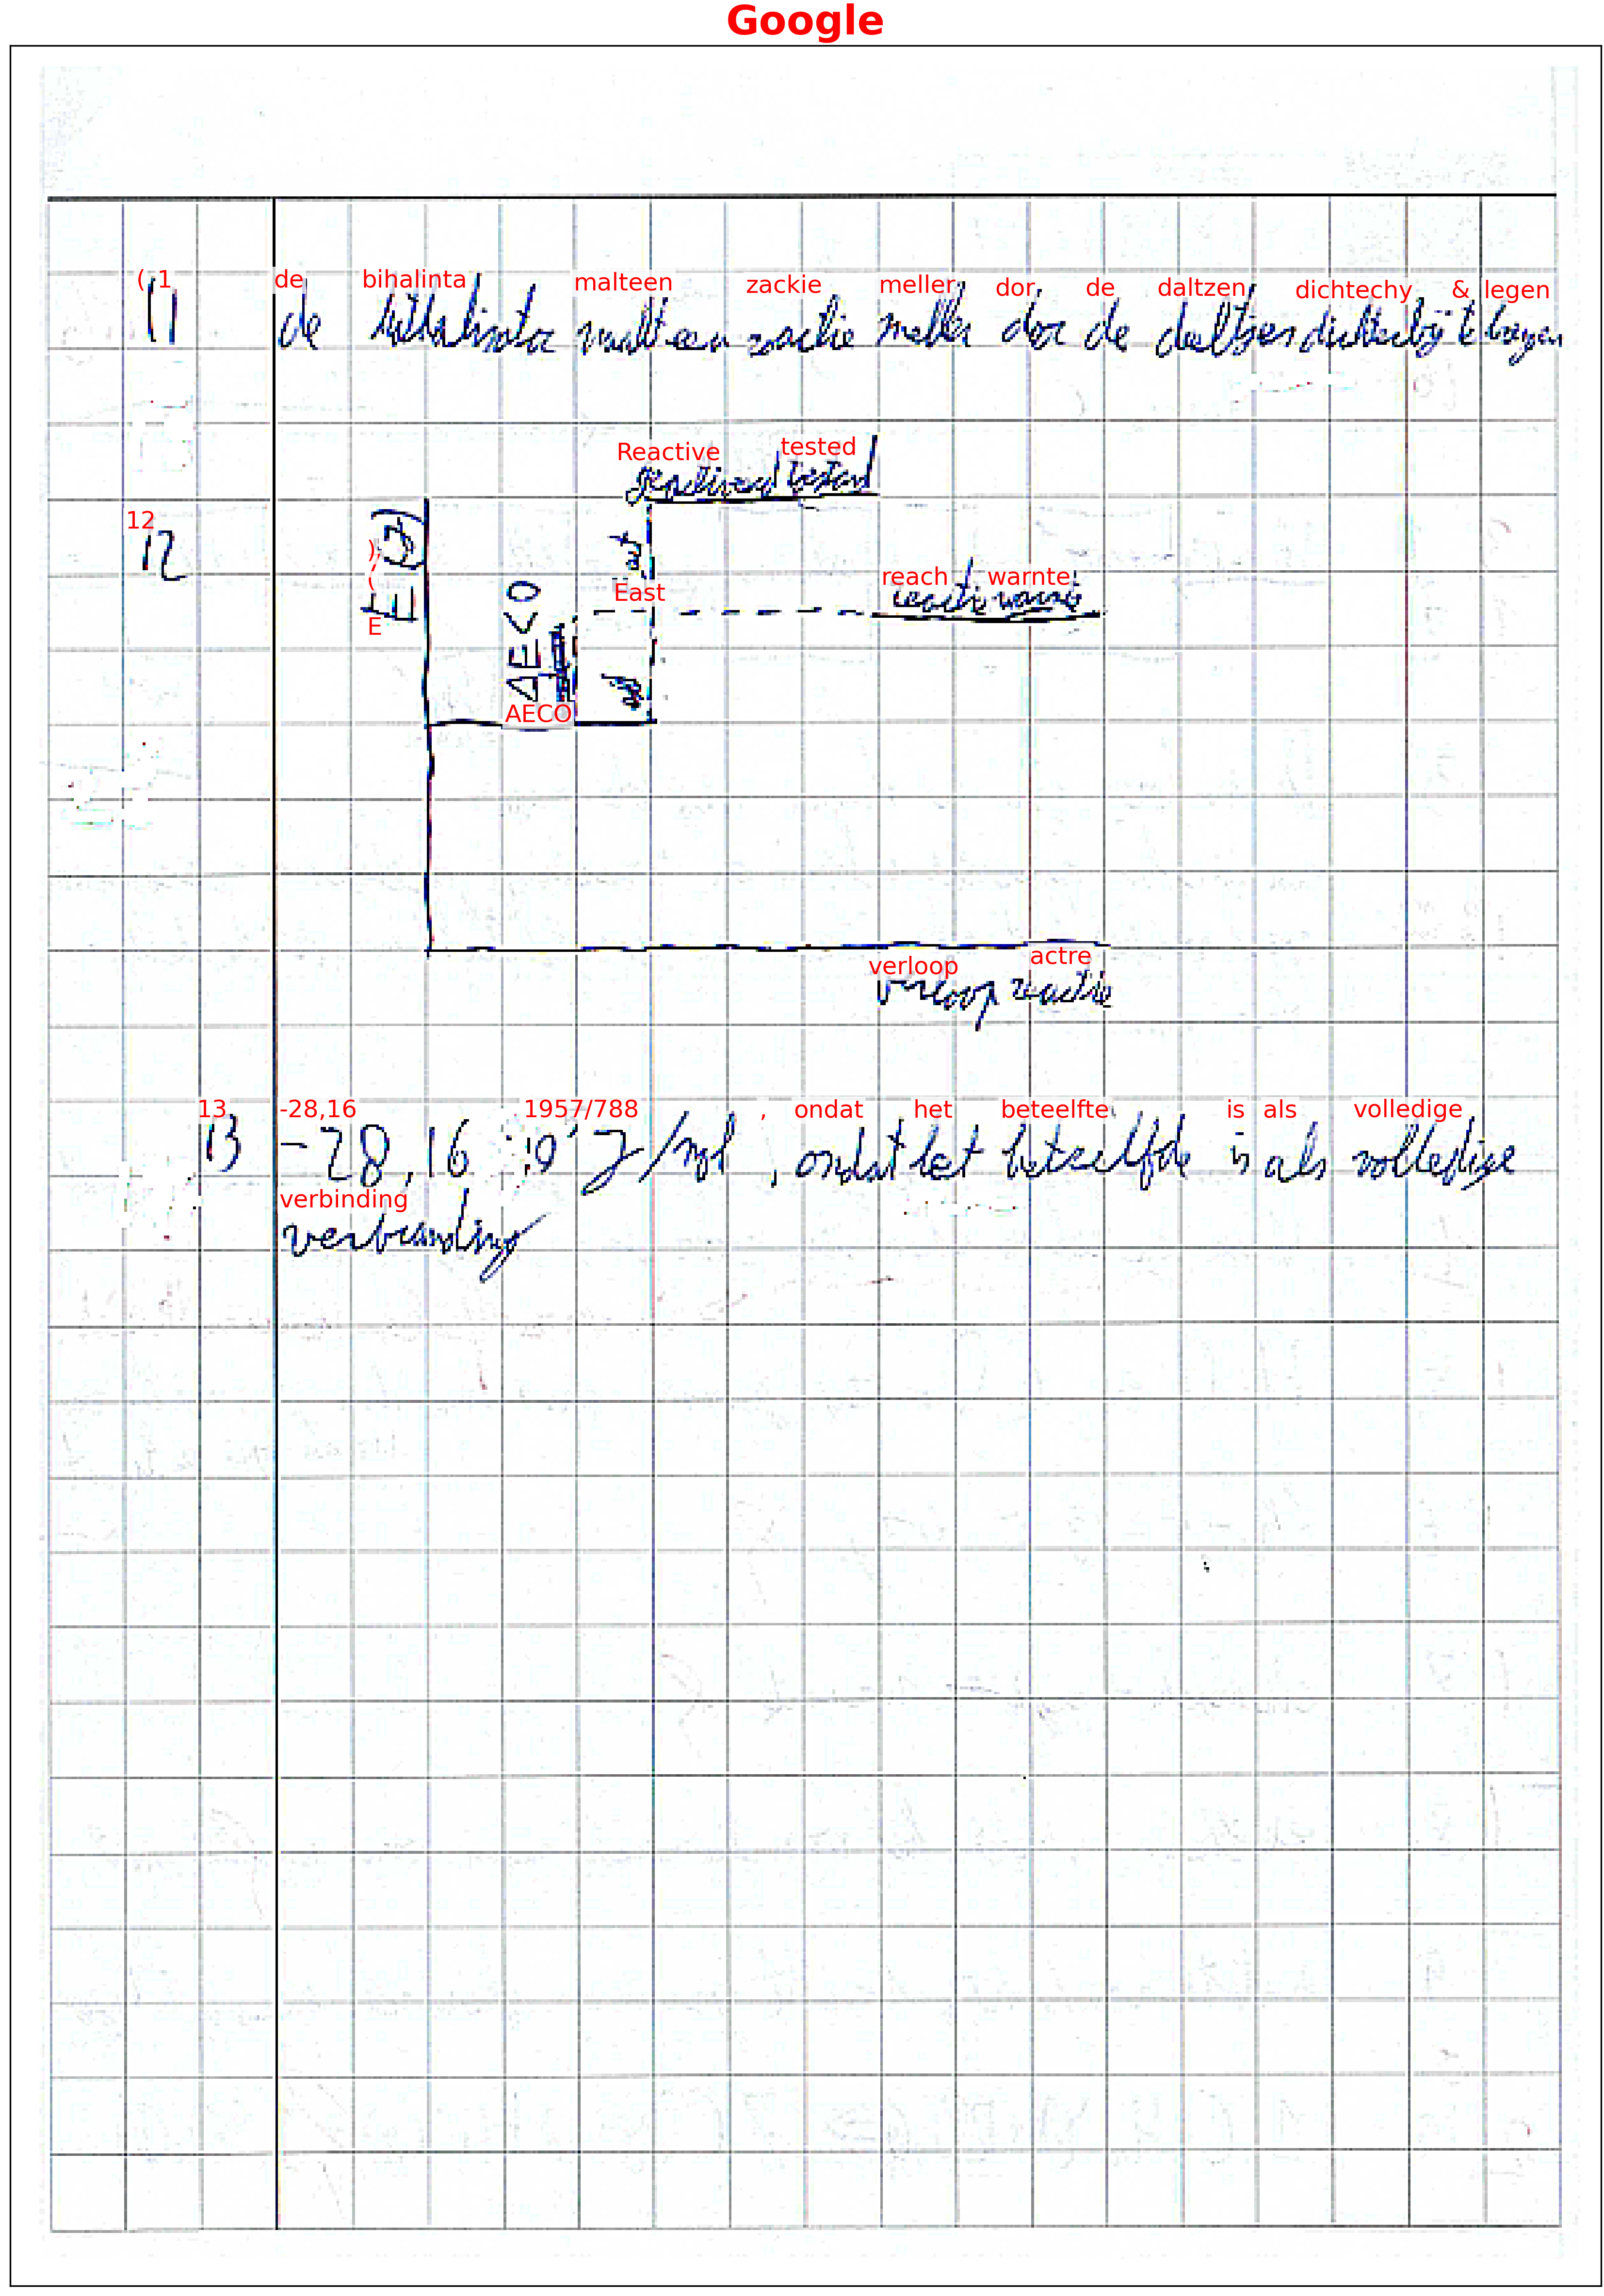 Google
( 1 de bihalinta malteen zackie meller dor de daltzen dichtechy & legen
11 de maakt een reactie sneller door de deeltjes dichterbij te brengen
Reactive tested
12
12
E ( ) ;
E (J)
East
reach warnte
reactie warmte
ΔE<0
AECO
verloop actre
verloop reactie
13 -28,16 1957/788 , ondat het beteelfte is als volledige
13 -28,16 J/mol , omdat het hetzelfde is als volledige
verbinding
verbranding